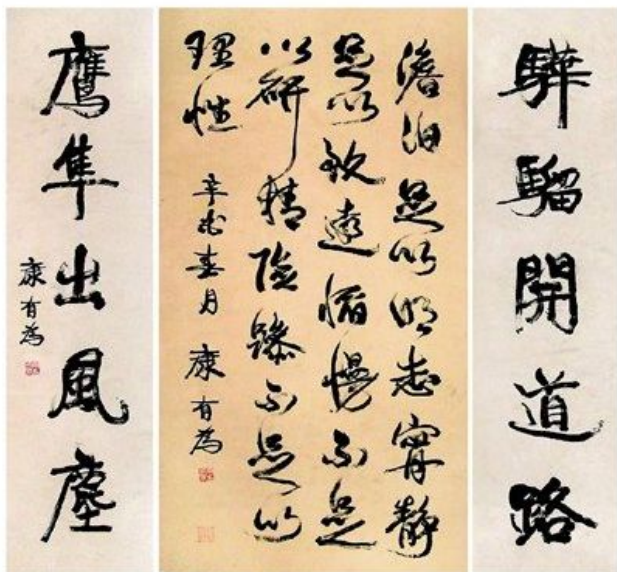 驊騮開道路
澹泊足以明志寧靜
足以致遠慆慢不足
以研精險躁不足以
理性
辛 春月 康有為
鷹隼出風塵
康有為